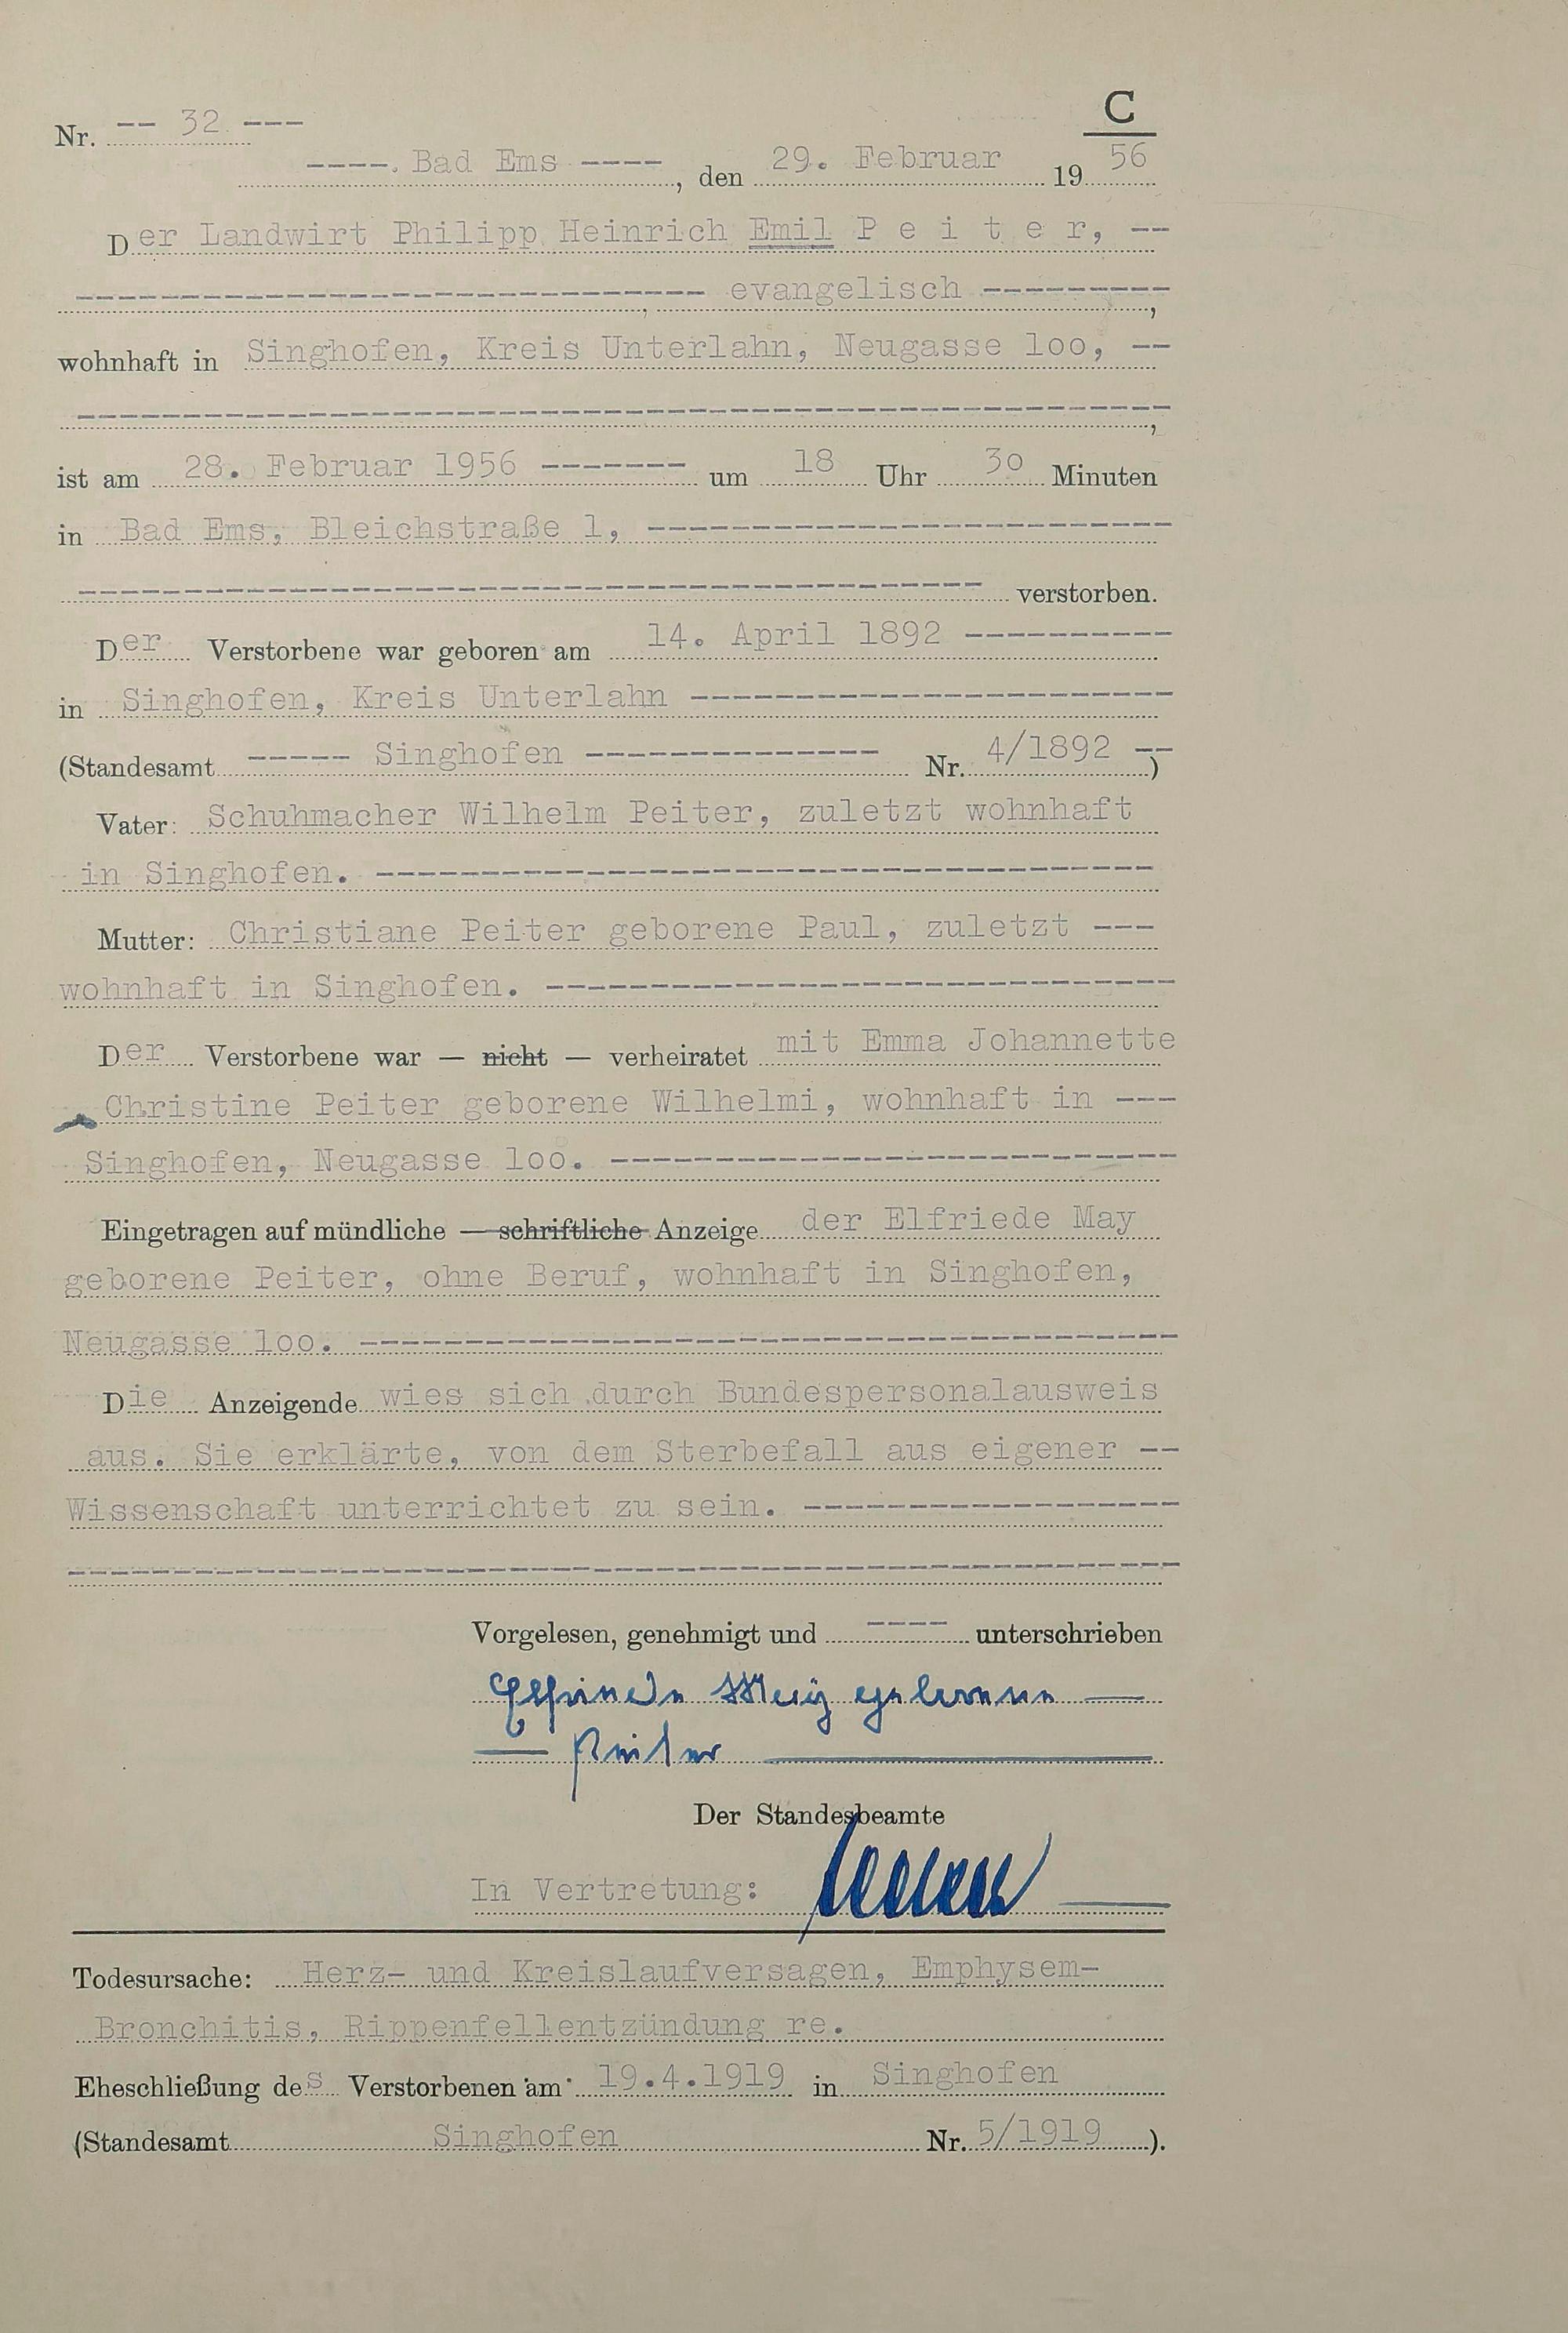 C
Nr. -- 32 ---
----. Bad Ems ----, den 29. Februar 1956
Der Landwirt Philipp Heinrich Emil P e i t e r, --
------------------------------ evangelisch ---------,
wohnhaft in Singhofen, Kreis Unterlahn, Neugasse loo, --
----------------------------------------------------,
ist am 28. Februar 1956 ------- um 18 Uhr 3o Minuten
in Bad Ems, Bleichstraße 1, -------------------------
------------------------------------------- verstorben.
Der Verstorbene war geboren am 14. April 1892 ----------
in Singhofen, Kreis Unterlahn -----------------------
(Standesamt ----- Singhofen -------------- Nr. 4/1892 --)
Vater: Schuhmacher Wilhelm Peiter, zuletzt wohnhaft
in Singhofen. -------------------------------------
Mutter: Christiane Peiter geborene Paul, zuletzt ---
wohnhaft in Singhofen. ------------------------------
Der Verstorbene war — nicht — verheiratet mit Emma Johannette
Christine Peiter geborene Wilhelmi, wohnhaft in ---
Singhofen, Neugasse loo. ---------------------------
Eingetragen auf mündliche — schriftliche Anzeige der Elfriede May
geborene Peiter, ohne Beruf, wohnhaft in Singhofen,
Neugasse loo. ---------------------------------------
Die Anzeigende wies sich durch Bundespersonalausweis
aus. Sie erklärte, von dem Sterbefall aus eigener --
Wissenschaft unterrichtet zu sein. ------------------
-----------------------------------------------------
Vorgelesen, genehmigt und ---- unterschrieben
Elfriede May geborene —
— Peiter —
Der Standesbeamte
In Vertretung:
Todesursache: Herz- und Kreislaufversagen, Emphysem-
Bronchitis, Rippenfellentzündung re.
Eheschließung des Verstorbenen am 19.4.1919 in Singhofen
(Standesamt Singhofen Nr. 5/1919).